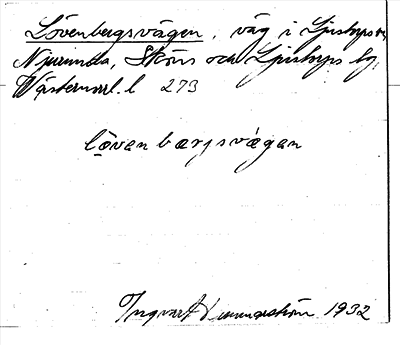 Lövenbergsvägen, väg i Ljustorps sn,
Njurunda, Sköns och Ljustorps tg,
Västernorrl. l 273
lövenbærjsvägan
Ingvar 1932